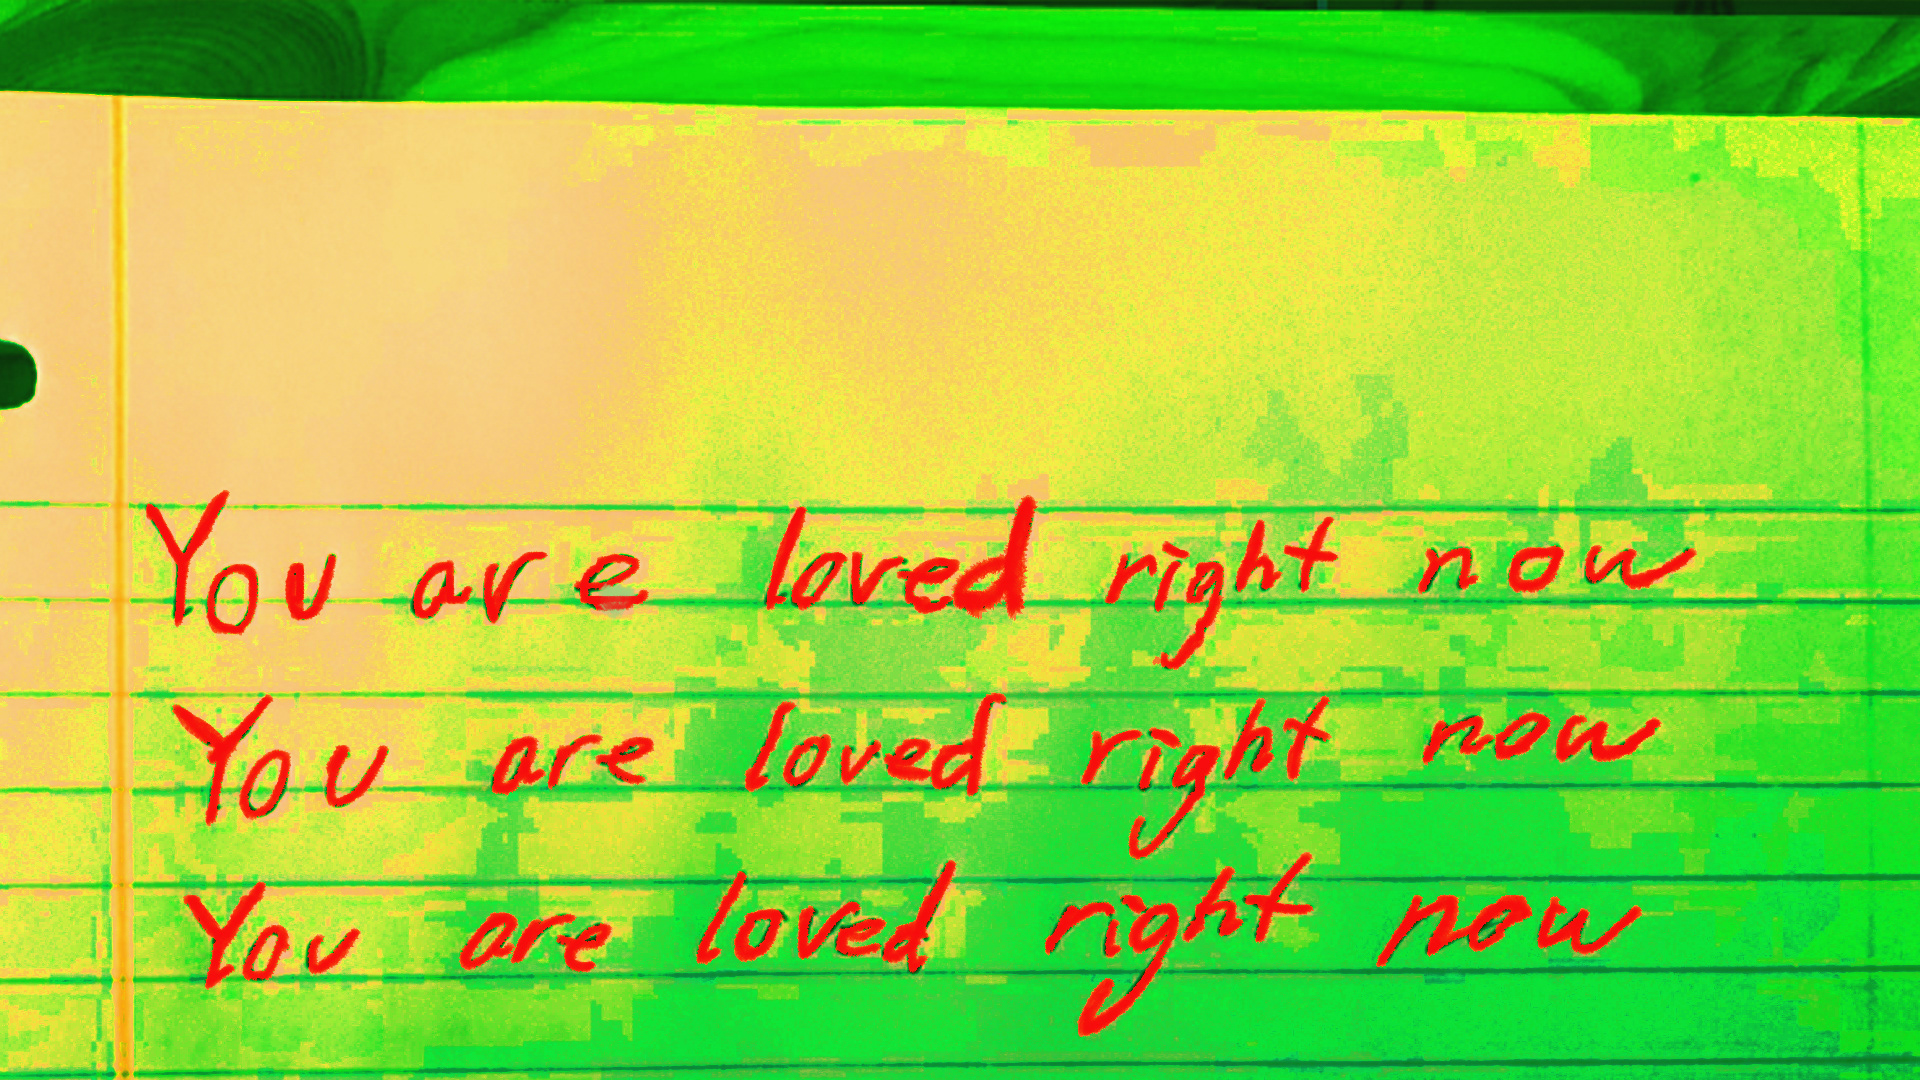 You are loved right now
You are loved right now
You are loved right now